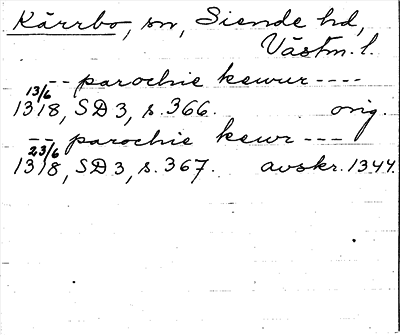 Kärrbo, sn, Siende hd,
Västm. l.
-- parochie kewur ----
13/6
1318, SD 3, s. 366. orig.
-- parochie kewr ---
23/6
1318, SD 3, s. 367. avskr. 1344.